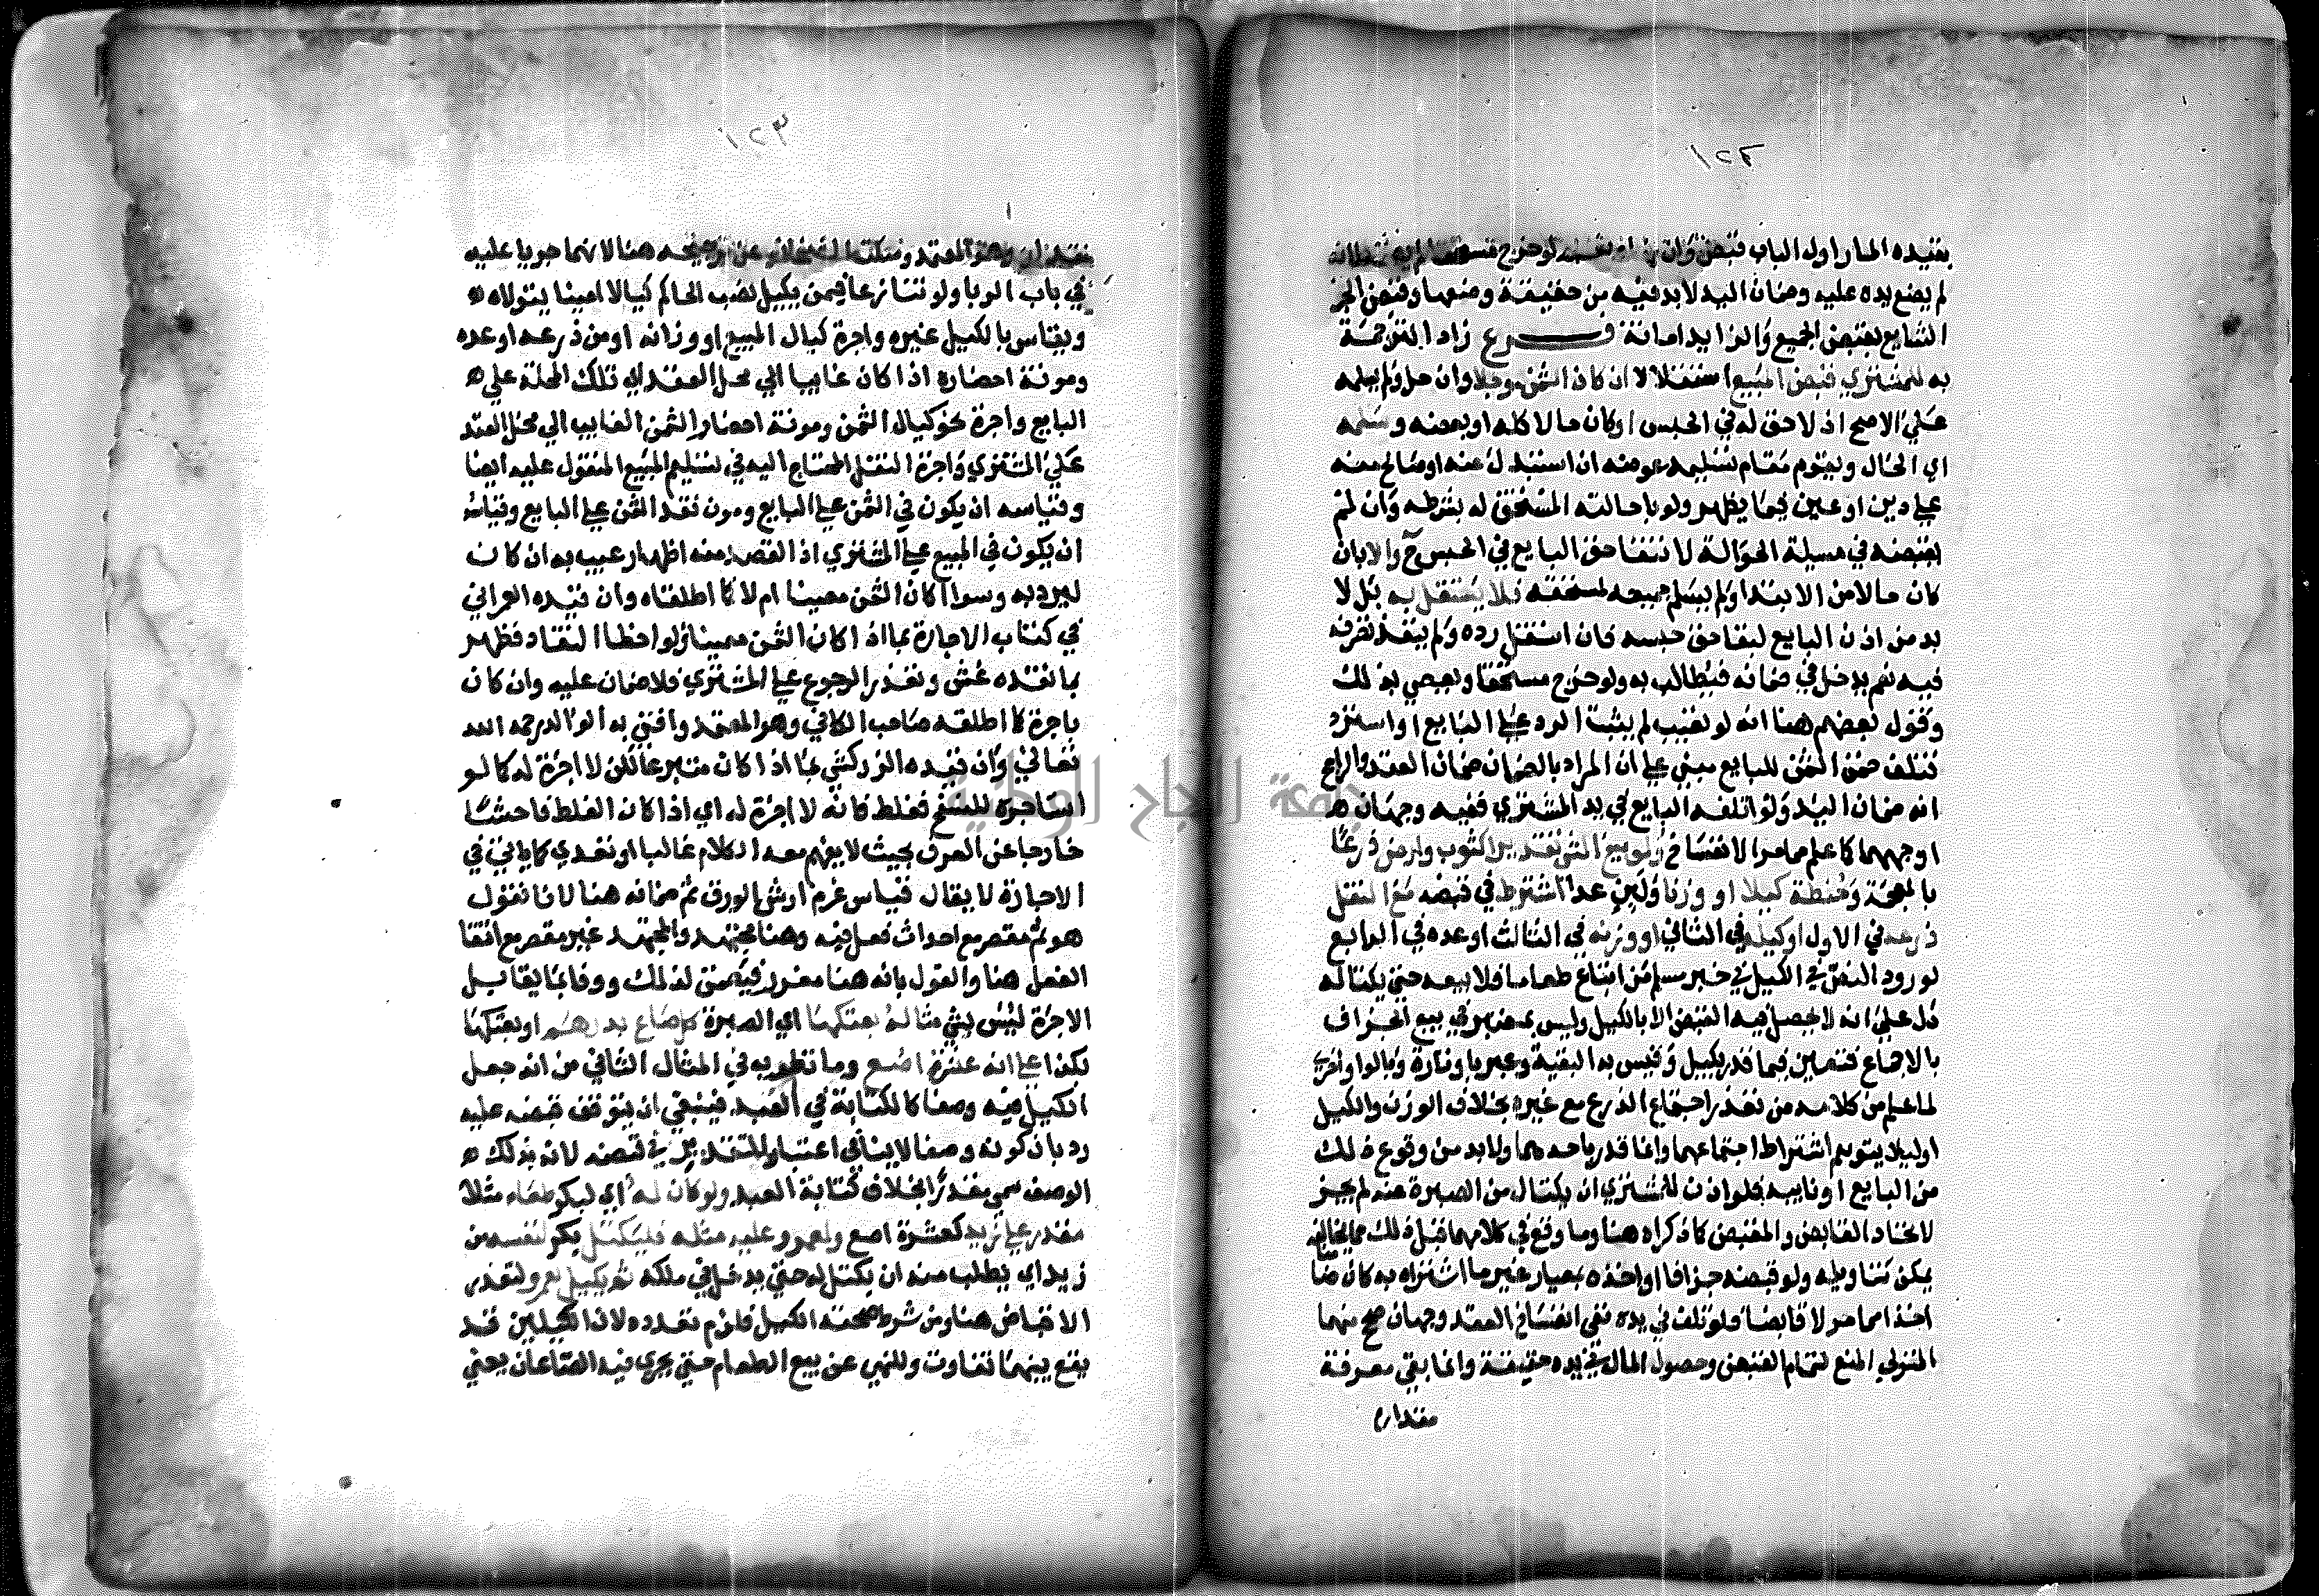 ١٢٤
بقيده المار اول الباب قبض وان لو خرج مستحقا
لم يضع يده عليه وضمان اليد لا بد فيه من حقيقة وضعها وقبض الجزء
الشايع بقبض الجميع والزايد امانة فرع زاد الترجمة
به للمشتري قبض المبيع استقلالا ان كان الثمن موجلا وان حل ولم يسلمه
على الاصح اذ لا حق له في الحبس او كان حالا كله او بعضه وسلمه
اي الحال ويقوم مقام تسليمه عوضه ان استبدل عنه او صالح منه
على دين او عين فيما يظهر ولو باحالته المستحق له بشرطه وان لم
يقبضه في مسيلة الحوالة لانتفا حق البايع في الحبس ح والا بان
كان حالا من الابتدا ولم يسلم جميعه لمستحقه فلا يستقل به بل لا
بد من اذن البايع لبقا حق حبسه فان استقل رده ولم ينفذ تصرفه
فيه نعم يدخل في ضمانه فيطالب به ولو خرج مستحقا ويعصي بذلك
وقول بعضهم هنا انه لو تعيب لم يثبت الرد على البايع او استرد
فتلف ضمن الثمن للبايع مبني على ان المراد بالضمان ضمان العقد والراجح
انه ضمان اليد ولو اتلفه البايع في يد المشتري ففيه وجهان
اوجههما كما علم مما مر الانفساخ ولو بيع الشي تقديرا كثوب وارض ذرعا
بالمعجمة وحنطة كيلا او وزنا ولبن عدا اشترط في قبضه مع النقل
ذرعه في الاول او كيله في الثاني او وزنه في الثالث او عده في الرابع
لورود النص في الكيل في خبر مسلم من ابتاع طعاما فلا يبعه حتى يكتاله
دل على انه لا يحصل فيه القبض الا بالكيل وليس بمعتبر في بيع الجزاف
بالاجماع فتعين فيما قدر بكيل وقيس به البقية وعبر باو تارة وبالواو اخرى
لما علم من كلامه من تعذر اجتماع الذرع مع غيره بخلاف الوزن والكيل
اوليلا يتوهم اشتراط اجتماعهما وانما قدر باحدهما ولا بد من وقوع ذلك
من البايع او نايبه فلو اذن للمشتري ان يكتال من الصبرة عنه لم يجز
لاتحاد القابض والمقبض كما ذكراه هنا وما وقع في كلامهما قبل ذلك مما يخالفه
يمكن تاويله ولو قبضه جزافا او اخذه بمعيار غير ما اشتراه به كان ضامنا
اخذا مما مر لا قابضا فلو تلف في يده ففي انفساخ العقد وجهان صحح منهما
المتولي المنع لتمام القبض وحصول المال في يده حقيقة وانما بقي معرفة
مقداره
١٢٣
وهو المعتمد عن ترجيحه هنا لانهما جريا عليه
في باب الربا ولو تنازعا فيمن يكيل نصب الحاكم كيالا امينا يتولاه
ويقاس بالكيل غيره واجرة كيال المبيع او وزانه او من ذرعه او عده
ومونة احضاره اذا كان غايبا الي محل العقد اي تلك المحلة على
البايع واجرة نحو كيال الثمن ومونة احضار الثمن الغايب الي محل العقد
على المشتري واجرة النقل المحتاج اليه في تسليم المبيع المنقول عليه ايضا
وقياسه ان يكون في الثمن على البايع ومون نقد الثمن على البايع وقياسه
ان يكون في المبيع على المشتري اذ القصد منه اظهار عيب به ان كان
ليرد به وسوا اكان الثمن معينا ام لا كما اطلقاه وان قيده العمراني
في كتاب الاجارة بما اذا كان الثمن معينا ولو اخطا النقاد فظهر
بما نقده غش وتعذر الرجوع على المشتري فلا ضمان عليه وان كان
باجرة كما اطلقه صاحب الكافي وهو المعتمد وافتى به الوالد رحمه الله
تعالى وان قيده الزركشي بما اذا كان متبرعا لكن لا اجرة له كما لو
استاجره للنسخ فغلط فانه لا اجرة له اي اذا كان الغلط فاحشا
خارجا عن العرف بحيث لا يفهم معه الكلام غالبا او تعدي كما ياتي في
الاجارة لا يقال قياس غرم ارش الورق ثم ضمانه هنا لانا نقول
هو ثم مقصر مع احداث فعل فيه وهنا مجتهد والمجتهد غير مقصر مع انتفا
الفعل هنا والقول بانه هنا مغرور فيضمن لذلك ووفا بما يقابل
الاجرة ليس بشي مثاله بعتكها اي الصبرة كل صاع بدرهم او بعتكها
بكذا على انه عشرة اصع وما نظر به في المثال الثاني من انه جعل
الكيل فيه وصفا كالكتابة في العبد فينبغي ان يتوقف قبضه عليه
رد بان كونه وصفا لا ينافي اعتبار التقدير في قبضه لانه بذلك
الوصف سمي مقدرا بخلاف كتابة العبد ولو كان له اي لبكر طعام مثلا
مقدر على زيد كعشرة اصع ولعمرو عليه مثله فليكتل بكر لنفسه من
زيد اي يطلب منه ان يكتل له حتى يدخل في ملكه ثم يكيل لعمرو لتعذر
الاقباض هنا ومن شرط صحته الكيل فلزم تعدده لان الكيلين قد
يقع بينهما تفاوت وللنهي عن بيع الطعام حتى يجري فيه الصاعان يعني